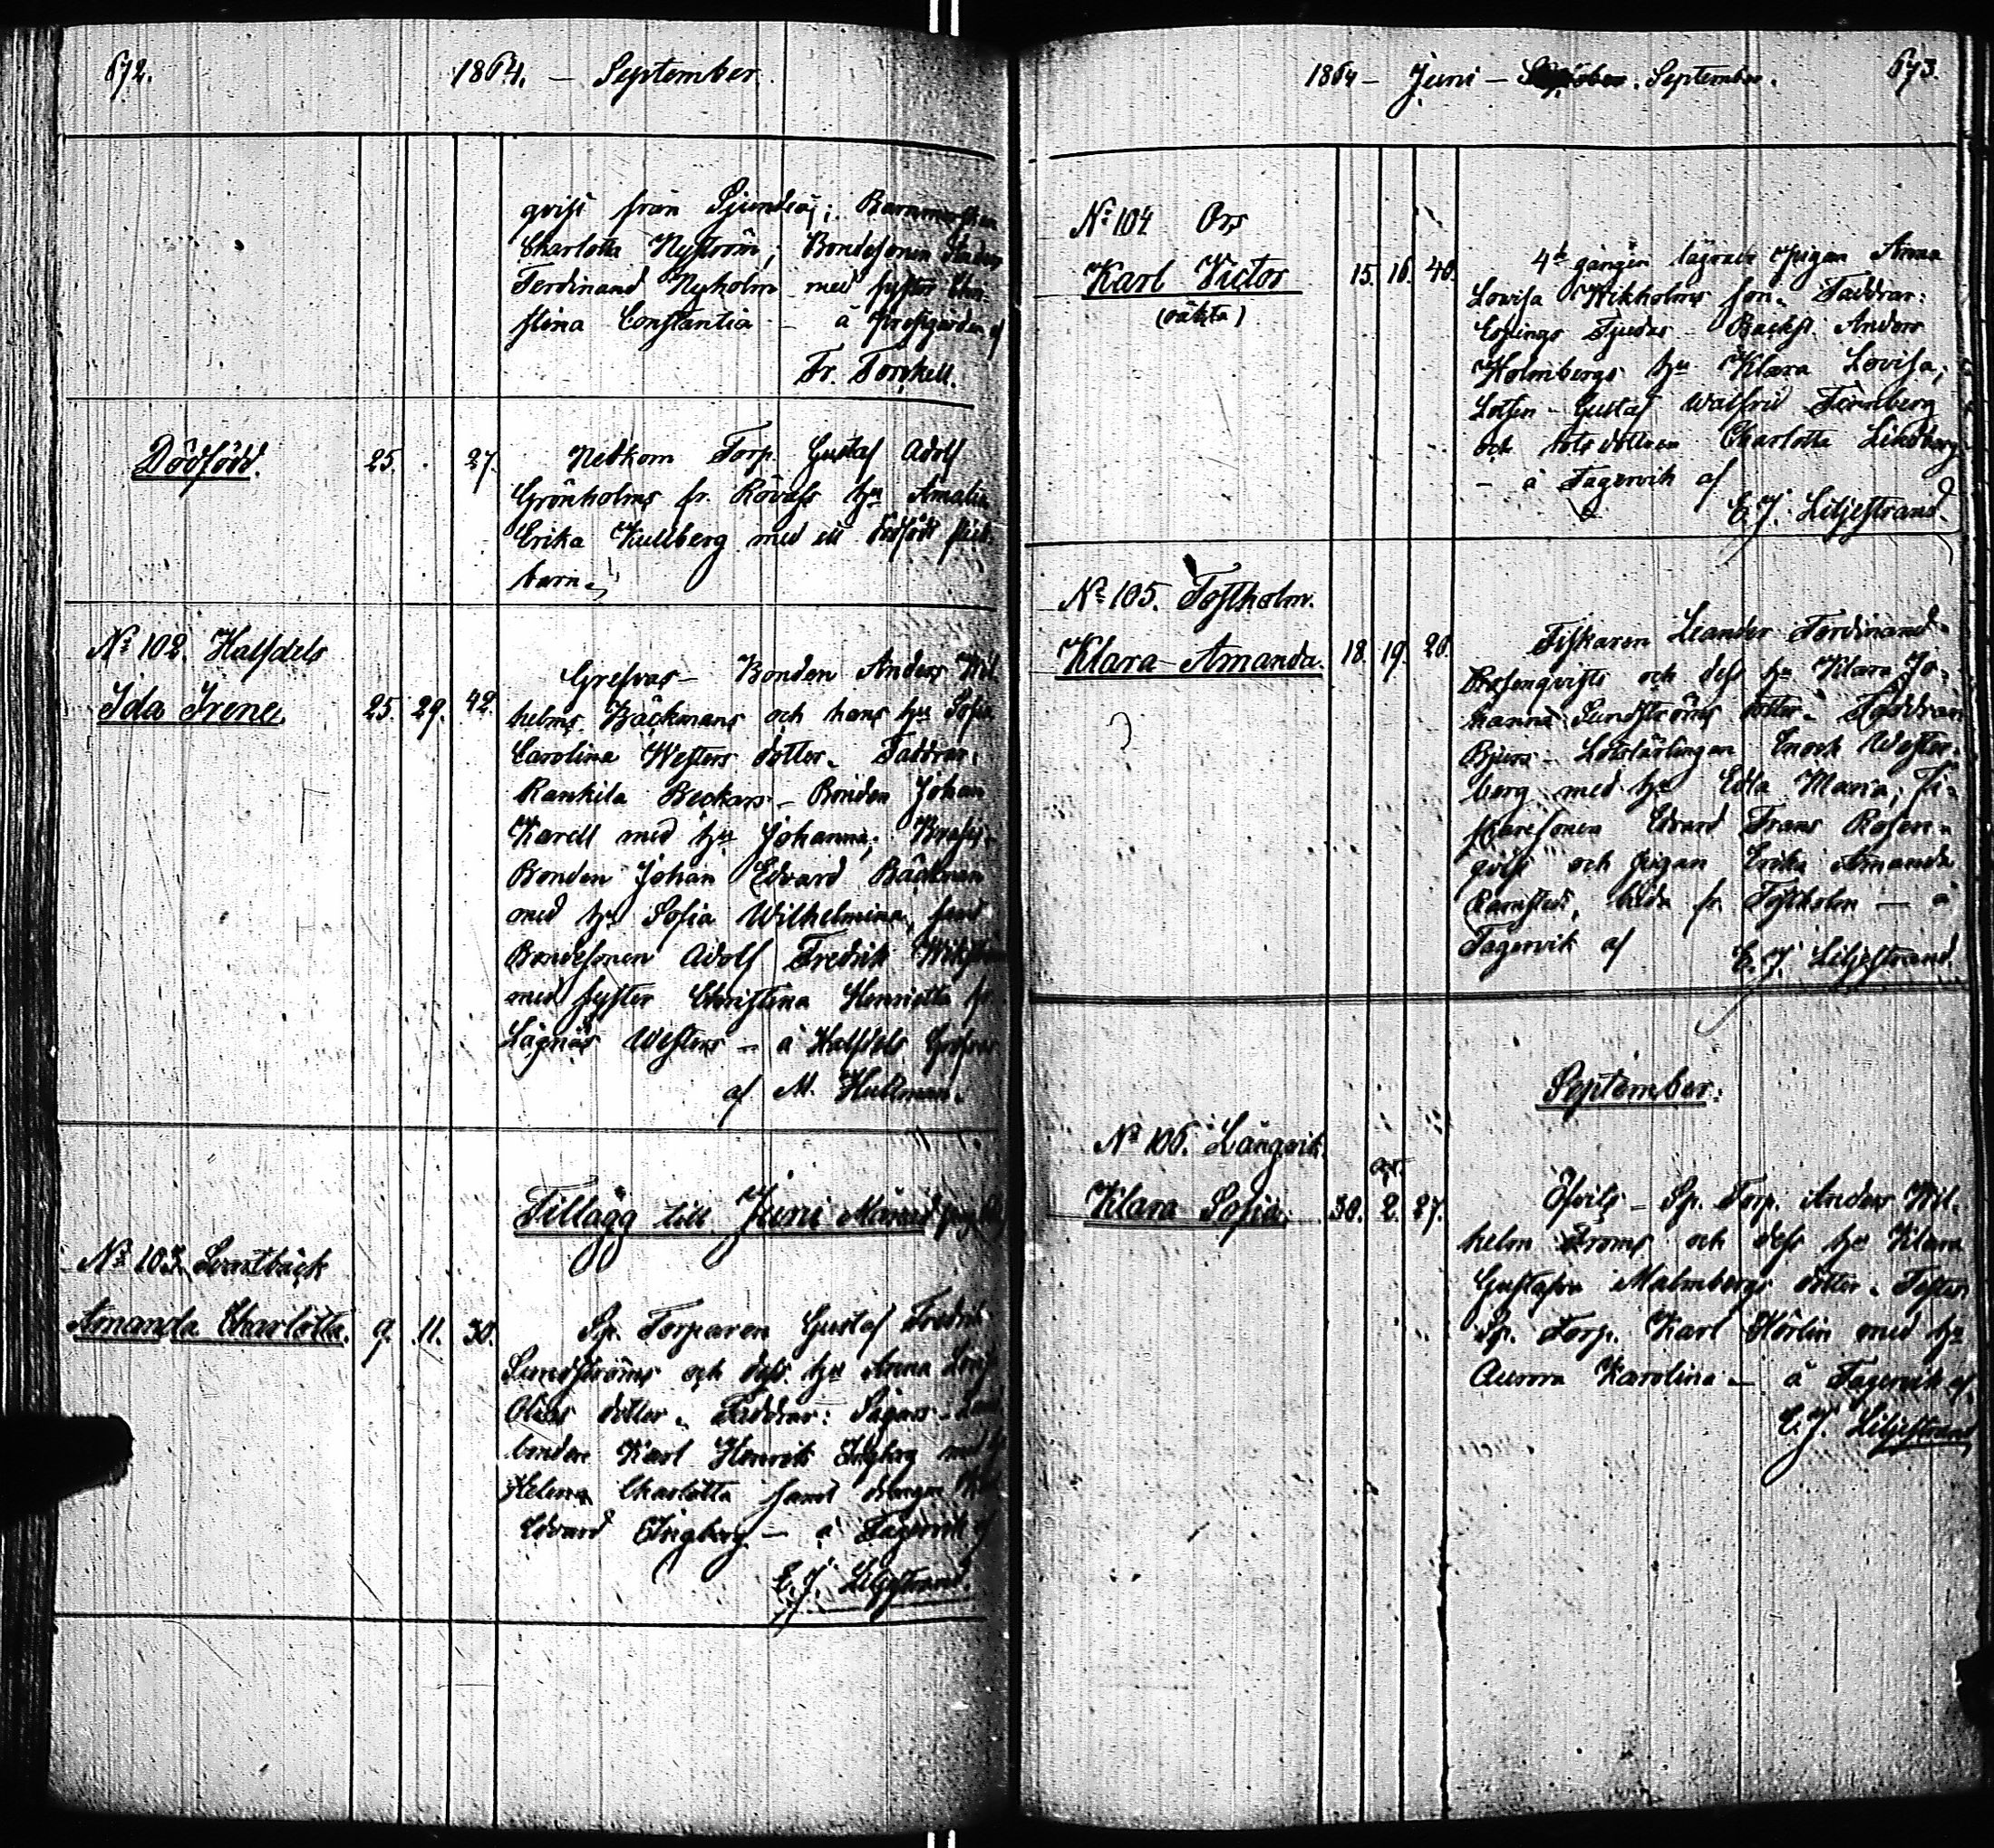 672.
1864. – September.
qvist från Sjundeå; Barnmorskan
Charlotta Nyström; Bondesonen
Ferdinand Nyholm med syster Chri-
stina Constantia – å Prostgården af
Fr. Torckell.
Dödfödd. 25. 27.
Nedkom Torp. Gustaf Adolf
Grönholms fr. hu Amalia
Erika Kullberg med ett dödfödt
barn.
No 102. Halfdels
Ida Irene. 25. 29. 42.
Grefvas – Bonden Anders Wil-
helms Bäckmans och hans hu Sofia
Carolina Westers dotter. Faddrar:
Rankila Beckars – Bonden Johan
Karell med hu Johanna;
Bonden Johan Edvard Bäckman
med hu Sofia Wilhelmina, samt
Bondesonen Adolf Fredrik
med syster Christina Henrietta fr.
Lågnäs Westers – å Halfdels Grefvas
af M. Hultman.
Tillägg till Juni Månad
No 103. Svartbäck
Amanda Charlotta. 9. 11. 30.
Sp. Torparen Gustaf Fredrik
Sundströms och dess hu Anna
dotter. Faddrar:
bonden Karl Henrik med hu
Helena Charlotta samt drängen
Edvard – å Fagervik af
E. J. Liljestrand.
1864 – Juni – September.
673.
No 104 Ors
Karl Victor 15. 16. 40.
(oäkta)
4de gången lägrade Pigan Anna
Lovisa Wikholms son. Faddrar:
Andors
Holmbergs hu Klara Lovisa;
Lotsen Gustaf Walfrid
och Lotsdottern Charlotta Lindberg
– å Fagervik af
E. J. Liljestrand
No 105. Tostholm.
Klara Amanda. 18. 19. 20.
Fiskaren Leander Ferdinand
Rosenqvists och dess hu Klara Jo-
hanna Sundströms dotter. Faddrar:
Lotslärlingen Enock Wester-
berg med hu Edla Maria; Fi-
skaresonen Edvard Frans Rosen-
qvist och pigan Erika Amanda
Ramstedt, båda fr. Tostholm – å
Fagervik af
E. J. Liljestrand.
September:
No 106. Långvik.
Klara Sofia. 30. 2. 27.
Öfvits – Sp. Torp. Anders Wil-
helm Ströms och dess hu Klara
Gustafva Malmbergs dotter.
Sp. Torp. Karl Hörlin med hu
Aurora Karolina – å Fagervik af
E. J. Liljestrand